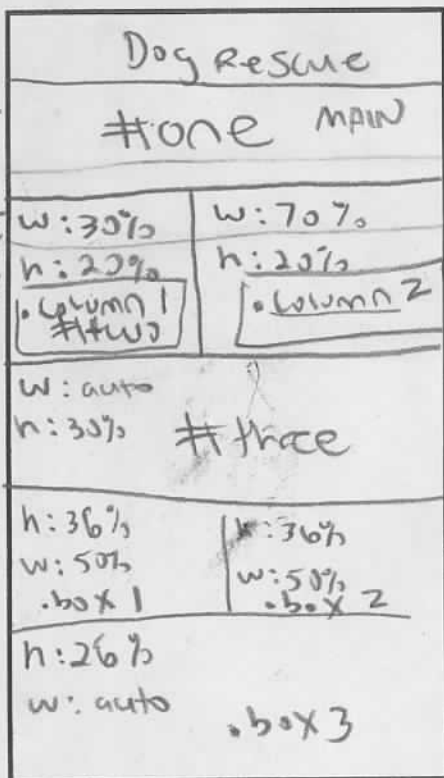 Dog Rescue
#one MAIN
w: 30%
h: 20%
.column 1
#two
w: 70%
h: 20%
.column 2
w: auto
h: 30%
#three
h: 36%
w: 50%
.box 1
h: 36%
w: 50%
.box 2
h: 26%
w: auto
.box 3